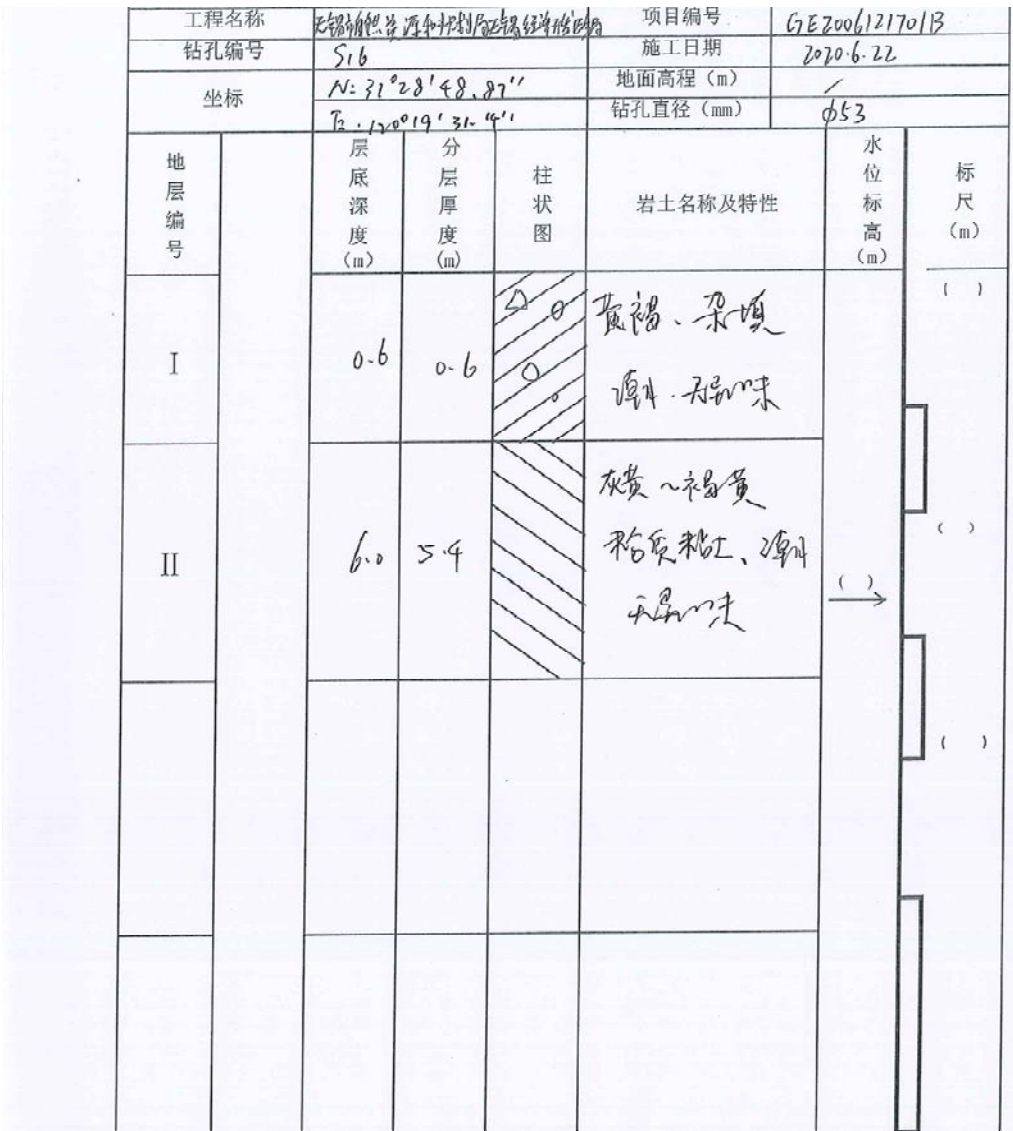 工程名称 无锡市自然资源和规划局无锡经济开发区分局 项目编号 GE2006121701B
钻孔编号 S16 施工日期 2020.6.22
坐标 N: 31°28'48.87" 地面高程（m） /
E: 120°19'31.4" 钻孔直径（mm） φ53
地层编号 层底深度(m) 分层厚度(m) 柱状图 岩土名称及特性 水位标高(m) 标尺(m)
( )
I 0.6 0.6 黄褐、杂填
潮、无异味
II 6.0 5.4 灰黄~褐黄
粉质粘土、潮
无异味
( )
( )
( )